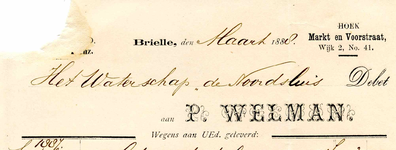 HOEK
Brielle, den Maart 1888.
Markt en Voorstraat,
Wijk 2, No. 41.
Het Waterschap de Noordsluis Debet
aan P. WELMAN.
Wegens aan UEd. geleverd:
1887